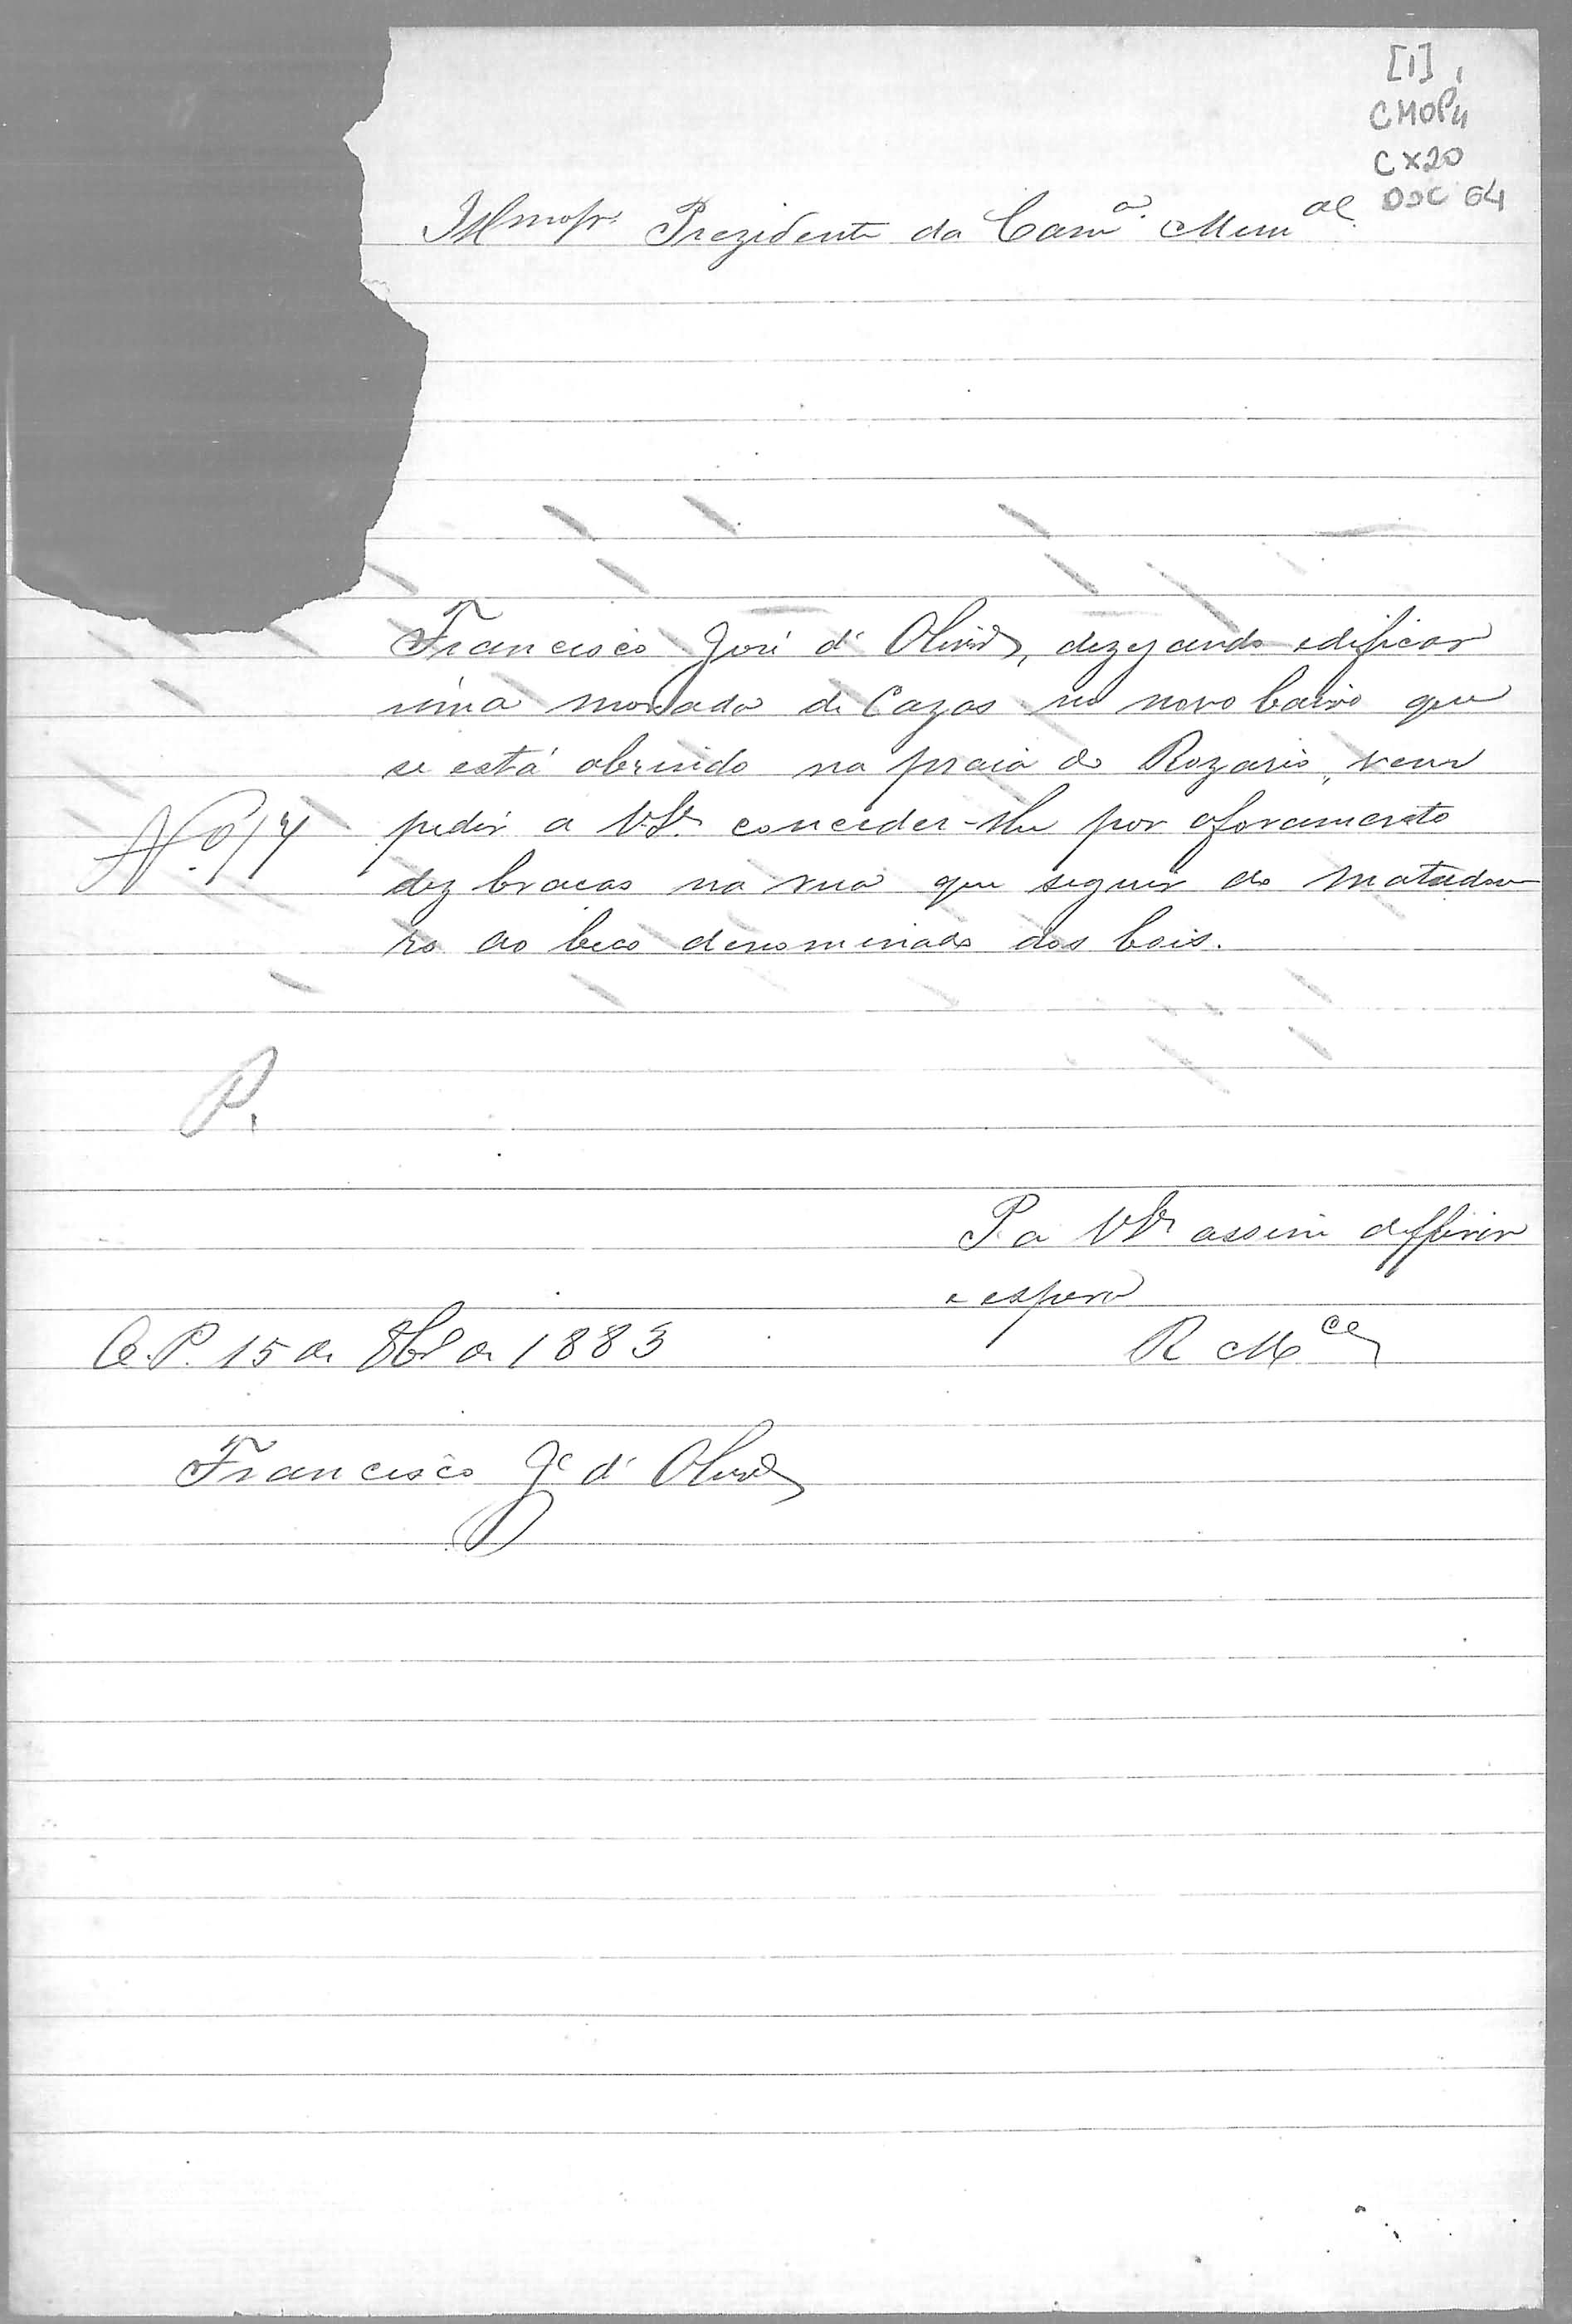 [1]
CMOP
CX20
DOC 64
Illmo Sr. Prezidente da Camª. Munal.
Francisco José d' Olivrª, dezejando edificar
uma morada de Cazas no novo bairo que
se está abrindo na praia do Rozario, vem
pedir a V.Sª. conceder-lhe por aforamento
Nº 14
dez bracas na rua que seguir do matadou-
ro ao beco denominado dos bois.
P.
P. a VSª assim defferir
e espera
R Mce
O. P. 15 de 8br de 1883
Francisco Je d' Olivrª